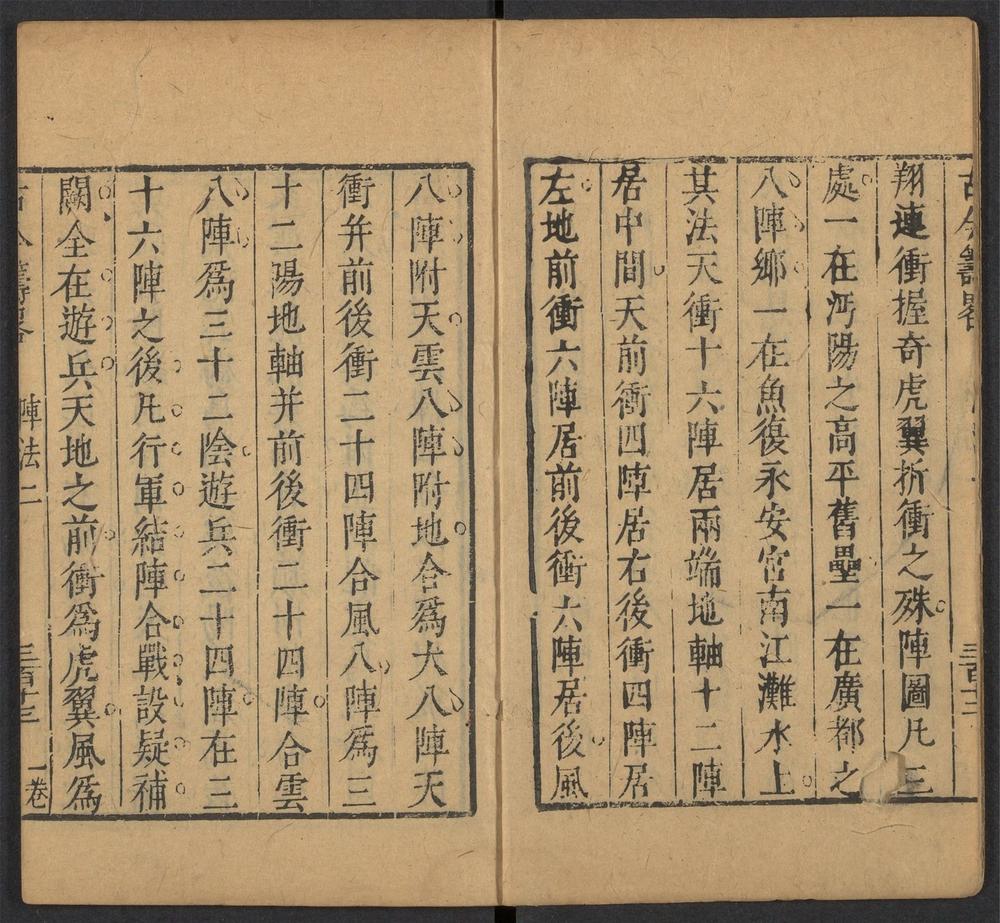 古今籌畧
三百十二
翔連衝握奇虎翼折衝之殊陣圖凡三
處一在沔陽之高平舊壘一在廣都之
八陣鄉一在魚復永安宮南江灘水上
其法天衝十六陣居兩端地軸十二陣
居中間天前衝四陣居右後衝四陣居
左地前衝六陣居前後衝六陣居後風
八陣附天雲八陣附地合爲大八陣天
衝并前後衝二十四陣合風八陣爲三
十二陽地軸并前後衝二十四陣合雲
八陣爲三十二陰遊兵二十四陣在三
十六陣之後凡行軍結陣合戰設疑補
闕全在遊兵天地之前衝爲虎翼風爲
古今籌畧
陣法二
三百十三
一卷